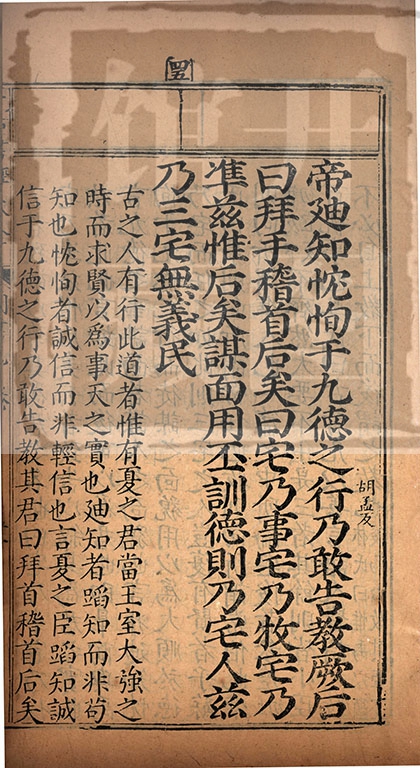 四五
帝廸知忱恂于九德之行乃敢告教厥后
胡孟反
曰拜手稽首后矣曰宅乃事宅乃牧宅乃
凖兹惟后矣謀面用丕訓德則乃宅人兹
乃三宅無義民
古之人有行此道者惟有夏之君當王室大強之
時而求賢以為事天之實也廸知者蹈知而非苟
知也忱恂者誠信而非輕信也言夏之臣蹈知誠
信于九德之行乃敢告教其君曰拜首稽首后矣